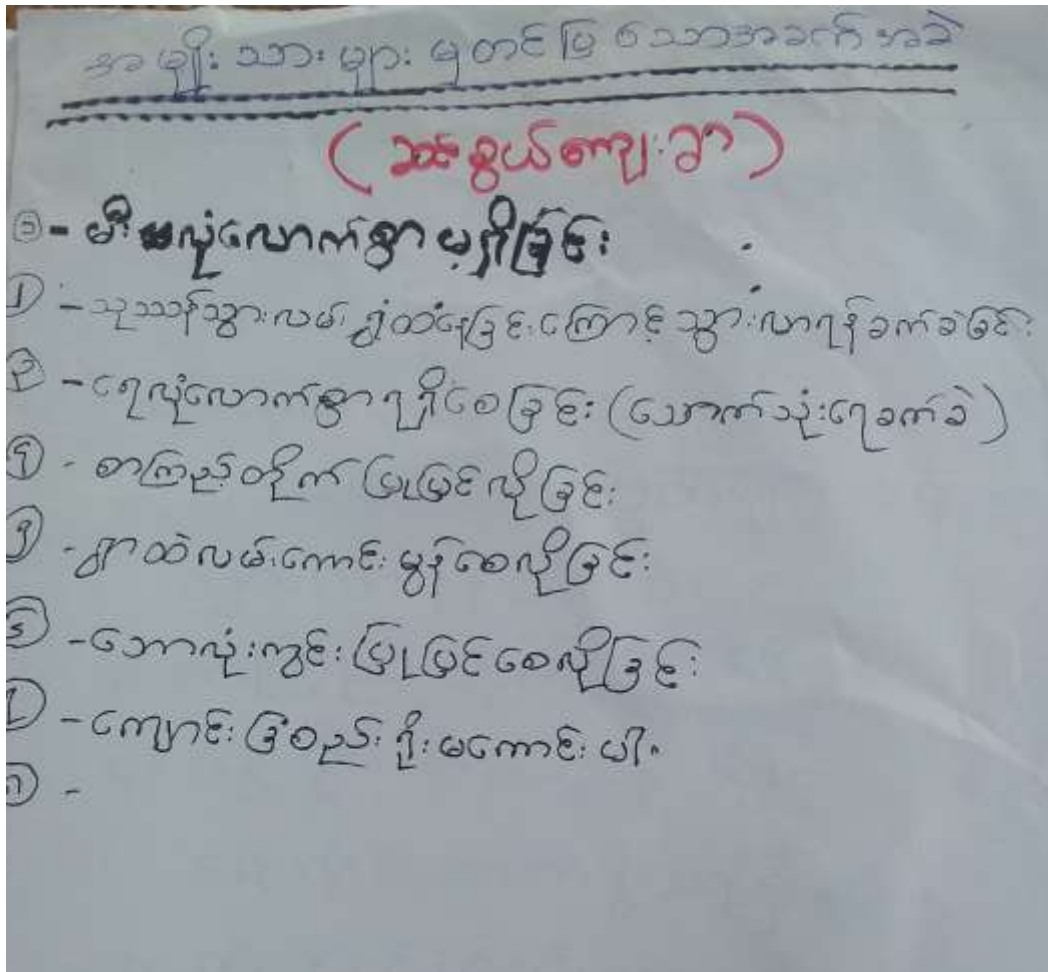 အမျိုးသားများမှတင်ပြသောအခက်အခဲ
(ဆင်စွယ်ကျေးရွာ)
၁- မီးမလုံလောက်စွာမရှိခြင်း
၂ - သုဿာန်သွားလမ်းရွှံ့ထဲနေခြင်းကြောင့်သွားလာရန်ခက်ခဲခြင်း
၃ - ရေလုံလောက်စွာရရှိစေခြင်း (သောက်သုံးရေခက်ခဲ)
၄ - စာကြည့်တိုက်ပြုပြင်လိုခြင်း
၅ - ရွာထဲလမ်းကောင်းမွန်စေလိုခြင်း
၆ - ဘောလုံးကွင်းပြုပြင်စေလိုခြင်း
၇ - ကျောင်းခြံစည်းရိုးမကောင်းပါ။
၈ -